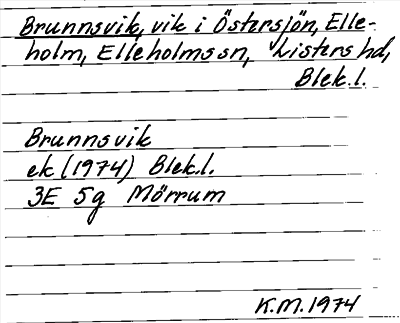 Brunnsvik, vik i Östersjön, Elle-
holm, Elleholmssn, Listers hd,
Blek.l.
Brunnsvik
ek (1974) Blek.l.
3E 5g Mörrum
K.M. 1974